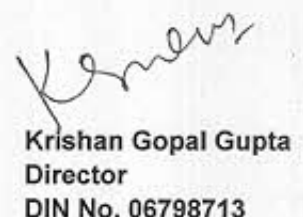 Krishan Gopal Gupta
Director
DIN No. 06798713